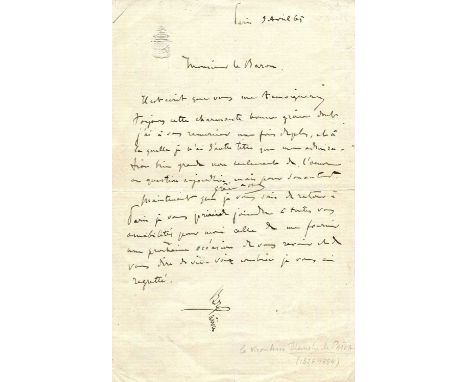 Paris 9 Avril 65
Monsieur le Baron.
Il est écrit que vous me témoignerez
toujours cette charmante bonne grâce dont
j'ai à vous remercier une fois de plus, et à
laquelle je n'ai d'autre titre que mon admira-
tion bien grande non seulement de l'œuvre
en question aujourd'hui mais pour
Maintenant que je vous sais de retour à
Paris je vous prierai joindre à toutes vos
amabilités pour moi celle de me fournir
une prochaine occasion de vous revoir et de
vous dire de vive voix combien je vous ai
regretté.
Le Vicomtesse de